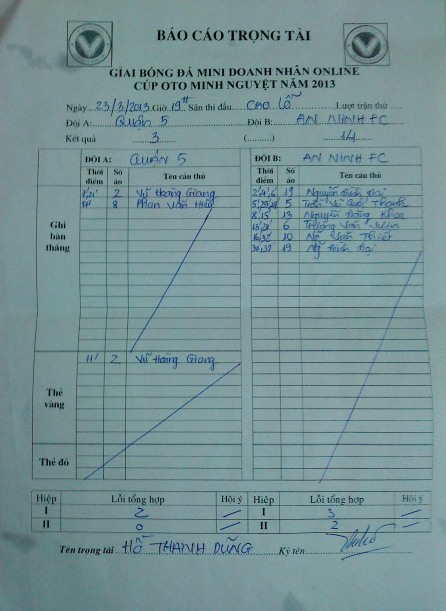 BÁO CÁO TRỌNG TÀI
GIẢI BÓNG ĐÁ MINI DOANH NHÂN ONLINE
CÚP OTO MINH NGUYỆT NĂM 2013
Ngày 23/3/2013 Giờ 19H Sân thi đấu CAO LỖ Lượt trận thứ
Đội A: QUẬN 5 Đội B: AN NINH FC
Kết quả 3 (..........) 14
ĐỘI A: QUẬN 5 ĐỘI B: AN NINH FC
Thời điểm Số áo Tên cầu thủ Thời điểm Số áo Tên cầu thủ
Ghi bàn thắng
2 Vũ Hoàng Giang 19 Nguyễn Đình Đại
8 Phan Văn 5 Trần Vũ Quốc Thanh
8,15 13 Nguyễn Đăng Khoa
6 Trương Văn
10 Ng Văn Thiết
19 Ng Đình Đại
Thẻ vàng
11' 2 Vũ Hoàng Giang
Thẻ đỏ
Hiệp Lỗi tổng hợp Hội ý Hiệp Lỗi tổng hợp Hội ý
I 2 I 3
II 0 II 2
Tên trọng tài HỒ THANH DŨNG Ký tên